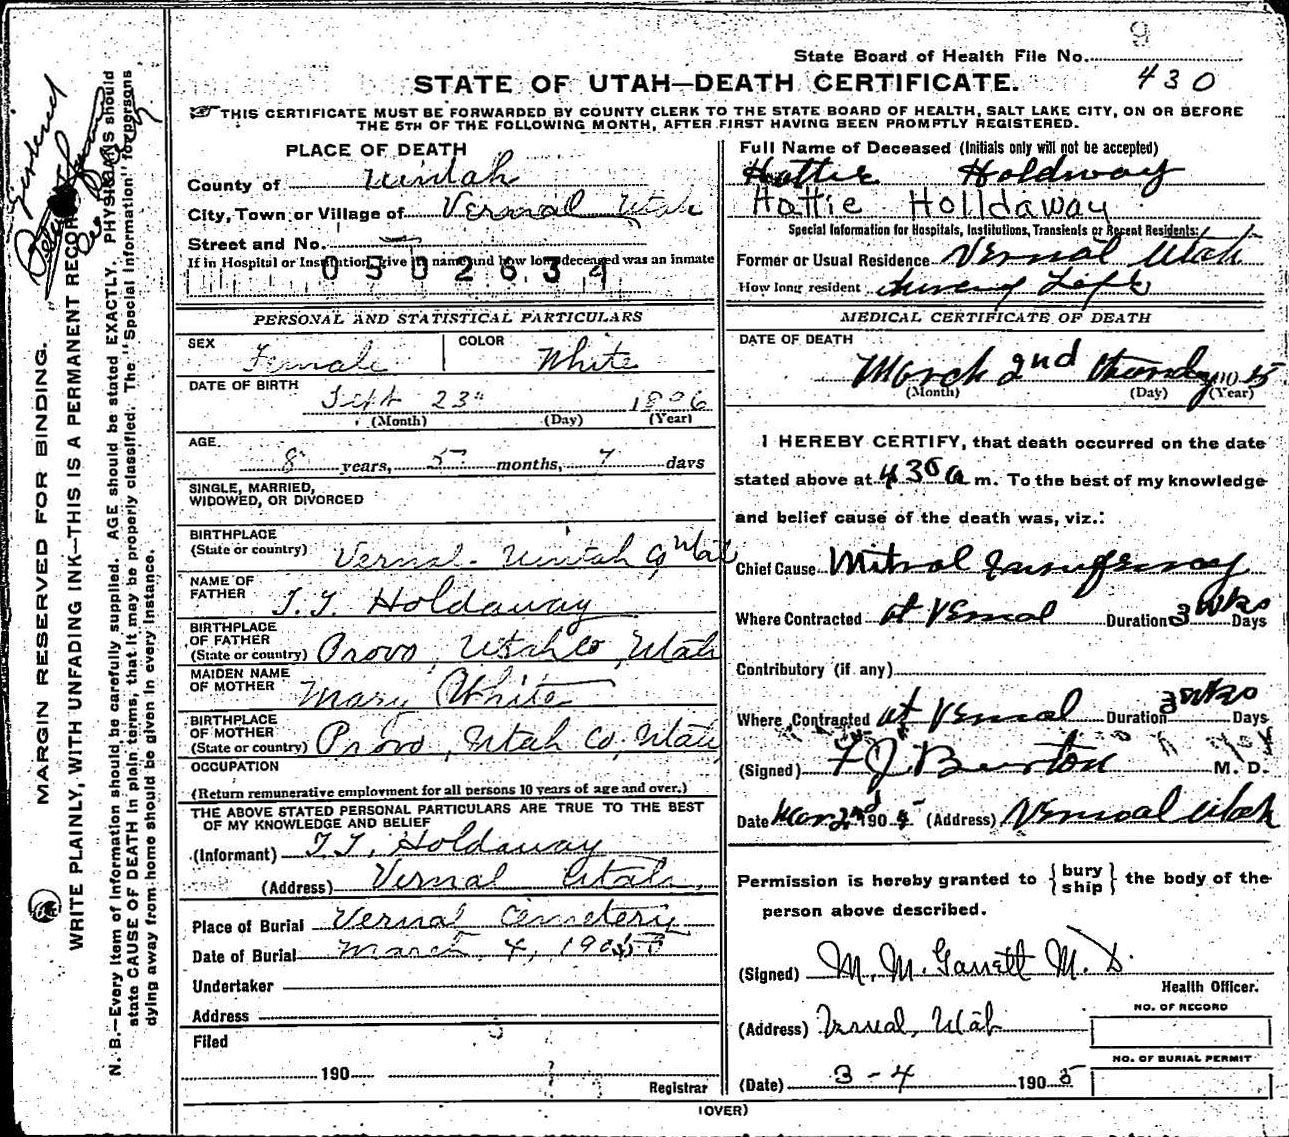 State Board of Health File No. 9
430
STATE OF UTAH—DEATH CERTIFICATE.
THIS CERTIFICATE MUST BE FORWARDED BY COUNTY CLERK TO THE STATE BOARD OF HEALTH, SALT LAKE CITY, ON OR BEFORE
THE 5TH OF THE FOLLOWING MONTH, AFTER FIRST HAVING BEEN PROMPTLY REGISTERED.
MARGIN RESERVED FOR BINDING.
WRITE PLAINLY, WITH UNFADING INK—THIS IS A PERMANENT RECORD
N. B.—Every item of information should be carefully supplied. AGE should be stated EXACTLY. PHYSICIANS should
state CAUSE OF DEATH in plain terms, that it may be properly classified. The "Special Information" for persons
dying away from home should be given in every instance.
PLACE OF DEATH
County of Uintah
City, Town or Village of Vernal Utah
Street and No.
If in Hospital or Institution, give its name and how long deceased was an inmate
0502634
PERSONAL AND STATISTICAL PARTICULARS
SEX Female COLOR White
DATE OF BIRTH
Sept 23" 1896
(Month) (Day) (Year)
AGE
8 years, 5 months, 7 days
SINGLE, MARRIED,
WIDOWED, OR DIVORCED
BIRTHPLACE
(State or country) Vernal. Uintah Co Utah
NAME OF
FATHER T. T. Holdaway
BIRTHPLACE
OF FATHER
(State or country) Provo, Utah Co, Utah
MAIDEN NAME
OF MOTHER Mary White
BIRTHPLACE
OF MOTHER
(State or country) Provo, Utah Co. Utah
OCCUPATION
(Return remunerative employment for all persons 10 years of age and over.)
THE ABOVE STATED PERSONAL PARTICULARS ARE TRUE TO THE BEST
OF MY KNOWLEDGE AND BELIEF
(Informant) T. T. Holdaway
(Address) Vernal Utah,
Place of Burial Vernal Cemetery
Date of Burial March 4, 1905
Undertaker
Address
Filed
190
Registrar
Full Name of Deceased (Initials only will not be accepted)
Hattie Holdway
Hattie Holldaway
Special Information for Hospitals, Institutions, Transients or Recent Residents:
Former or Usual Residence Vernal Utah
How long resident during Life
MEDICAL CERTIFICATE OF DEATH
DATE OF DEATH
March 2nd Thursday 1905
(Month) (Day) (Year)
I HEREBY CERTIFY, that death occurred on the date
stated above at 430 a m. To the best of my knowledge
and belief cause of the death was, viz.:
Chief Cause Mitral Insufficiency
Where Contracted at Vernal Duration 3 wks Days
Contributory (if any)
Where Contracted at Vernal Duration 3 wks Days
(Signed) F J Burton M. D.
Date Mar 2nd 1905 (Address) Vernal Utah
Permission is hereby granted to { bury
ship } the body of the
person above described.
(Signed) M. M. Garrett M. D.
Health Officer.
NO. OF RECORD
(Address) Vernal, Utah
NO. OF BURIAL PERMIT
(Date) 3-4 1905
(OVER)